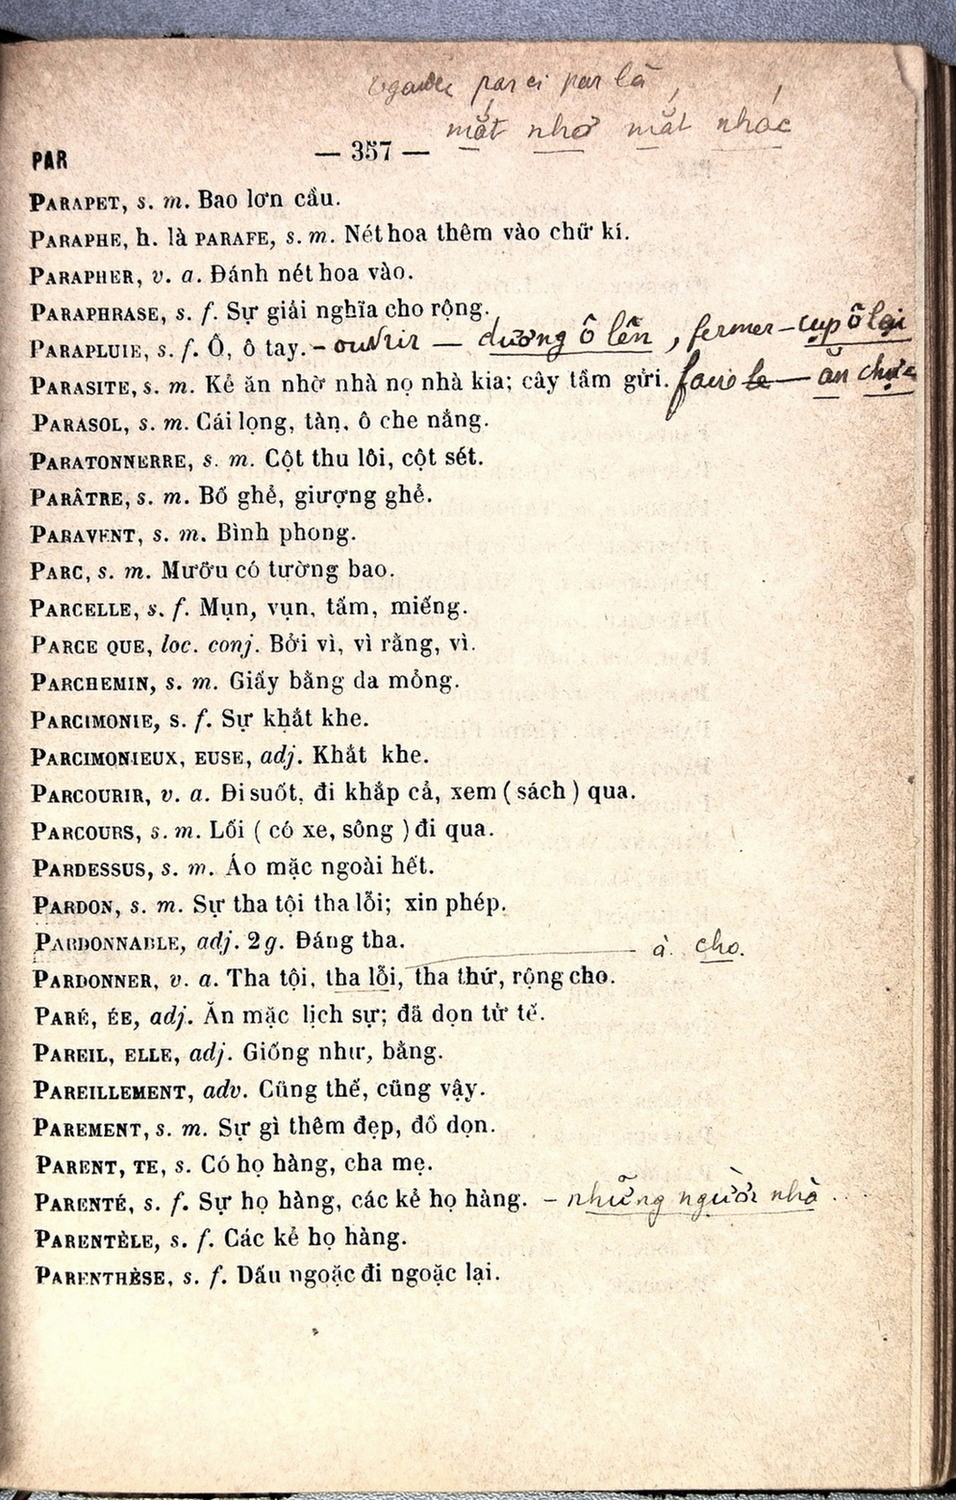 par ci par là,
mắt nhơ mắt nhác
PAR — 357 —
PARAPET, s. m. Bao lơn cầu.
PARAPHE, h. là PARAFE, s. m. Nét hoa thêm vào chữ kí.
PARAPHER, v. a. Đánh nét hoa vào.
PARAPHRASE, s. f. Sự giải nghĩa cho rộng.
PARAPLUIE, s. f. Ô, ô tay. - ouvrir — dương ô lên, fermer - cụp ô lại
PARASITE, s. m. Kẻ ăn nhờ nhà nọ nhà kia; cây tầm gửi. faire le — ăn chực
PARASOL, s. m. Cái lọng, tàn, ô che nắng.
PARATONNERRE, s. m. Cột thu lôi, cột sét.
PARÂTRE, s. m. Bố ghẻ, giượng ghẻ.
PARAVENT, s. m. Bình phong.
PARC, s. m. Mưỡu có tường bao.
PARCELLE, s. f. Mụn, vụn, tấm, miếng.
PARCE QUE, loc. conj. Bởi vì, vì rằng, vì.
PARCHEMIN, s. m. Giấy bằng da mỏng.
PARCIMONIE, s. f. Sự khắt khe.
PARCIMONIEUX, EUSE, adj. Khắt khe.
PARCOURIR, v. a. Đi suốt, đi khắp cả, xem ( sách ) qua.
PARCOURS, s. m. Lối ( có xe, sông ) đi qua.
PARDESSUS, s. m. Áo mặc ngoài hết.
PARDON, s. m. Sự tha tội tha lỗi; xin phép.
PARDONNABLE, adj. 2 g. Đáng tha. — à cho.
PARDONNER, v. a. Tha tội, tha lỗi, tha thứ, rộng cho.
PARÉ, ÉE, adj. Ăn mặc lịch sự; đã dọn tử tế.
PAREIL, ELLE, adj. Giống như, bằng.
PAREILLEMENT, adv. Cũng thế, cũng vậy.
PAREMENT, s. m. Sự gì thêm đẹp, đồ dọn.
PARENT, TE, s. Có họ hàng, cha mẹ.
PARENTÉ, s. f. Sự họ hàng, các kẻ họ hàng. - những người nhà ...
PARENTÈLE, s. f. Các kẻ họ hàng.
PARENTHÈSE, s. f. Dấu ngoặc đi ngoặc lại.